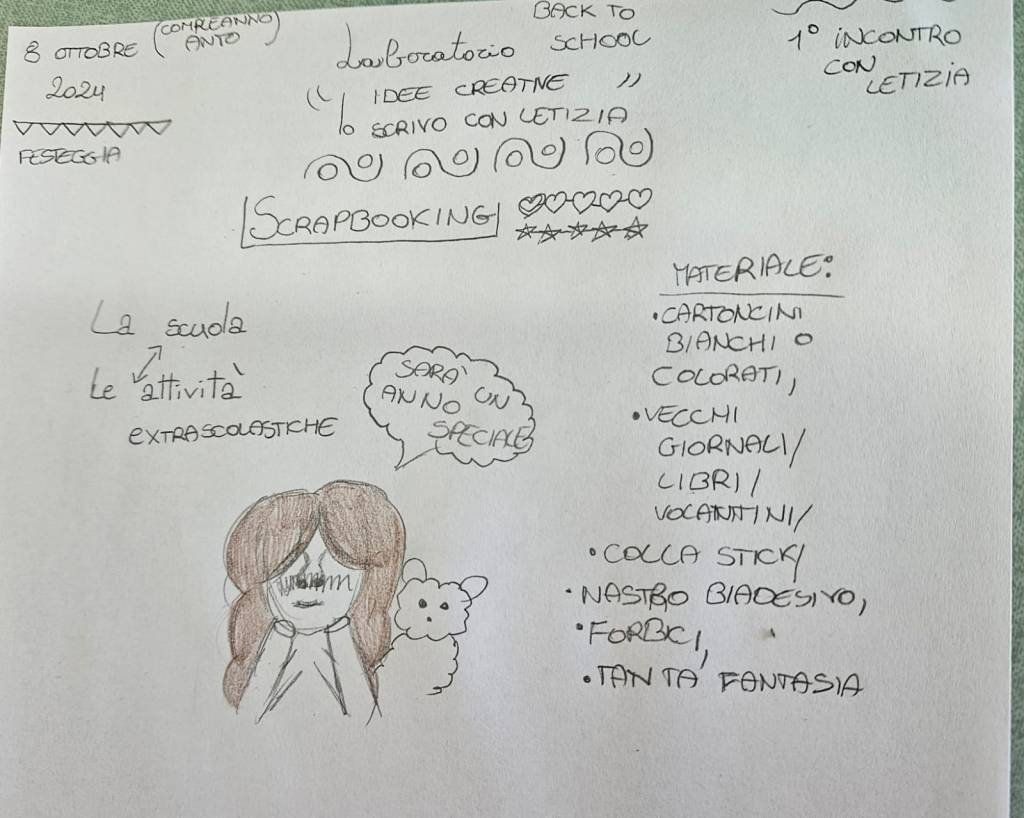 8 OTTOBRE (COMPLEANNO ANTO)
2024
FESTEGGIA
BACK TO
Laboratorio SCHOOL
"IDEE CREATIVE"
Io SCRIVO CON LETIZIA
1° INCONTRO
CON
LETIZIA
SCRAPBOOKING
La scuola
Le attività
EXTRASCOLASTICHE
SARA'
ANNO UN
SPECIALE
MATERIALE:
•CARTONCINI
BIANCHI O
COLORATI,
•VECCHI
GIORNALI/
LIBRI/
VOLANTINI/
•COLLA STICK/
•NASTRO BIADESIVO,
•FORBICI,
•TANTA FANTASIA